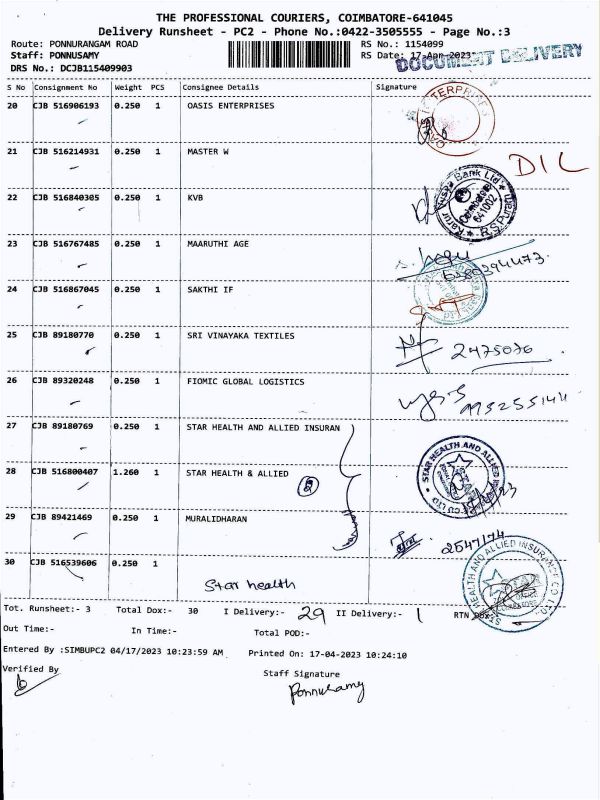 THE PROFESSIONAL COURIERS, COIMBATORE-641045
Delivery Runsheet - PC2 - Phone No.:0422-3505555 - Page No.:3
Route: PONNURANGAM ROAD
RS No.: 1154099
Staff: PONNUSAMY
RS Date: 17-Apr-2023
DOCUMENT DELIVERY
DRS No.: DCJB115409903
S No Consignment No Weight PCS Consignee Details Signature
20 CJB 516906193 0.250 1 OASIS ENTERPRISES
21 CJB 516214931 0.250 1 MASTER W DIL
22 CJB 516840305 0.250 1 KVB
Karur Vysya Bank Ltd
Coimbatore
641002
R.S.Puram
23 CJB 516767485 0.250 1 MAARUTHI AGE
24 CJB 516867045 0.250 1 SAKTHI IF
25 CJB 89180770 0.250 1 SRI VINAYAKA TEXTILES 2475076
26 CJB 89320248 0.250 1 FIOMIC GLOBAL LOGISTICS
27 CJB 89180769 0.250 1 STAR HEALTH AND ALLIED INSURAN
STAR HEALTH AND ALLIED
28 CJB 516800407 1.260 1 STAR HEALTH & ALLIED 2
29 CJB 89421469 0.250 1 MURALIDHARAN 2547174
30 CJB 516539606 0.250 1
Star health
STAR HEALTH AND ALLIED INSURANCE CO LTD
Tot. Runsheet:- 3 Total Dox:- 30 I Delivery:- 29 II Delivery:- 1 RTN Dox:-
Out Time:- In Time:- Total POD:-
Entered By :SIMBUPC2 04/17/2023 10:23:59 AM Printed On: 17-04-2023 10:24:10
Verified By Staff Signature
Ponnusamy